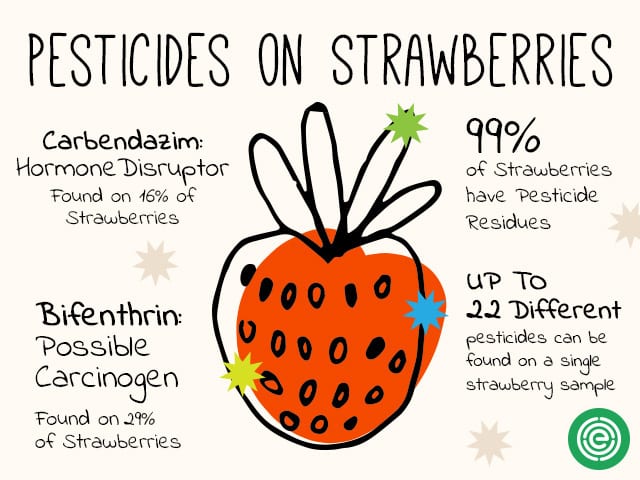 PESTICIDES ON STRAWBERRIES
Carbendazim:
Hormone Disruptor
Found on 16% of
Strawberries
99%
of Strawberries
have Pesticide
Residues
Bifenthrin:
Possible
Carcinogen
Found on 29%
of Strawberries
UP TO
22 Different
pesticides can be
found on a single
strawberry sample
e